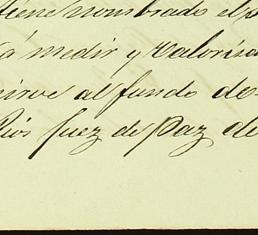 tiene nombrado el p
á medir y valoriza
sirve al fundo de
Rios Juez de Paz de